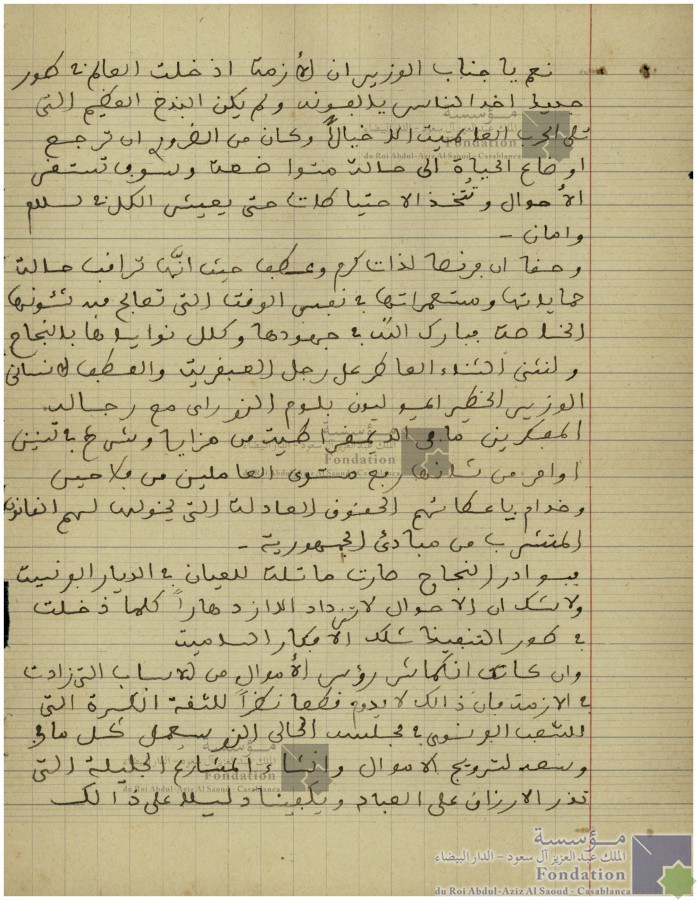 نعم يا جناب الوزير ان الأزمة ادخلت العالم في طور
جديد اخذ الناس يألفونه ولم يكن البذخ العظيم الذي
الحرب العالمية الا خيالاً وكان من الضروري ان ترجع
اوضاع الحياة الى حالة متواضعة وسوف تستقر
الأحوال وتُتخذ الاحتياطات حتى يعيش الكل في سلام
وامان -
وحقا ان فرنسا لذات كرم وعطف حيث انّها تراقب حالة
حماياتها ومستعمراتها في نفس الوقت التي تعالج فيه شئونها
الخاصة مبارك اللّه في جهودها وكلل نواياها بالنجاح
ولنثني الثناء العاطر على رجل العبقرية والعطف الانساني
الوزير الخطير المسيو ليون بلوم الذي رأى مع رجاله
المفكرين ما في الديمقراطية من مزايا وشرع في تسنين
اوامر من شأنها رفع مستوى العاملين من فلاحين
وخدام باعطائهم الحقوق العادلة التي يخولها لهم القانون
المتشرب من مبادئ الجمهورية -
فبوادر النجاح صارت ماثلة للعيان في الديار الفرنسية
ولا شك ان الاحوال لا تزداد الا ازدهاراً كلما دخلت
في طور التنفيذ تلك الأفكار السامية
وان كان انكماش رؤس الأموال من الاسباب التي زادت
في الازمة فان ذالك لا يدوم قطعا نظراً للثقة الكبرة التي
للشعب الفرنسوي في مجلسه الحالي الذي سيعمل كل ما في
وسعه لترويج الاموال وانشاء المشاريع الجليلة التي
تدر الارزاق على العباد ويكفينا دليلا على ذالك
مؤسسة
الملك عبد العزيز آل سعود - الدار البيضاء
Fondation
du Roi Abdul-Aziz Al Saoud - Casablanca